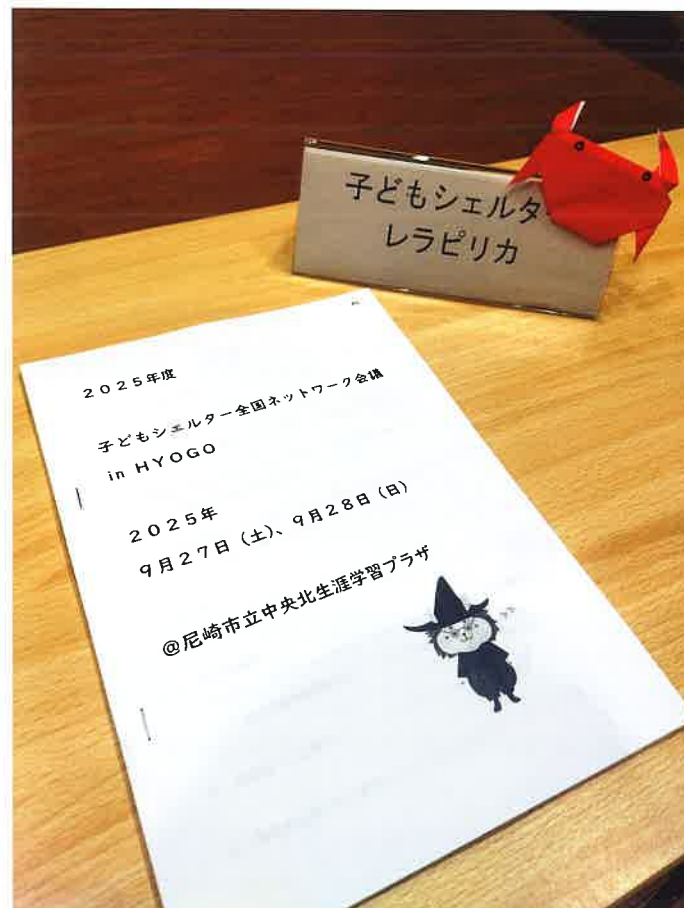 子どもシェルター
レラピリカ
2025年度
子どもシェルター全国ネットワーク会議
in HYOGO
2025年
9月27日(土)、9月28日(日)
@尼崎市立中央北生涯学習プラザ